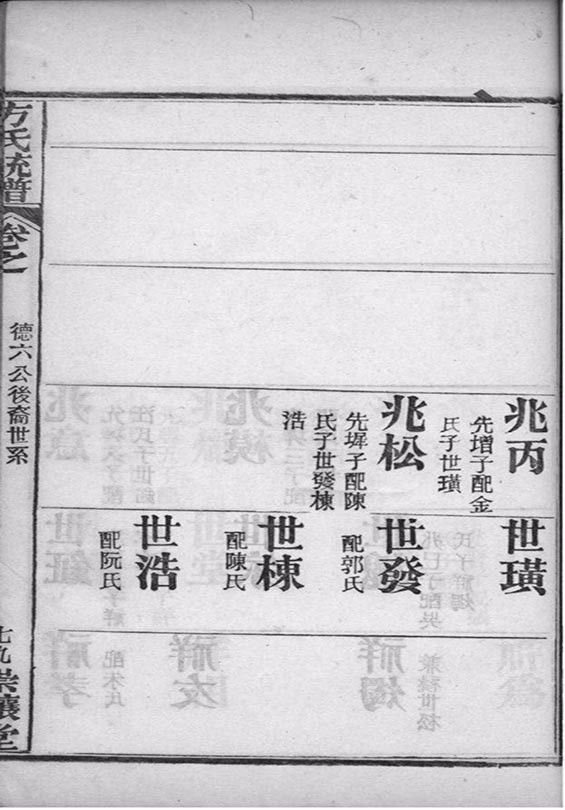 兆丙
先增子配金
氏子世璜
兆松
先墀子配陳
氏子世發棟
浩
世璜
世發
配郭氏
世棟
配陳氏
世浩
配阮氏
方氏統譜
卷之
德六公後裔世系